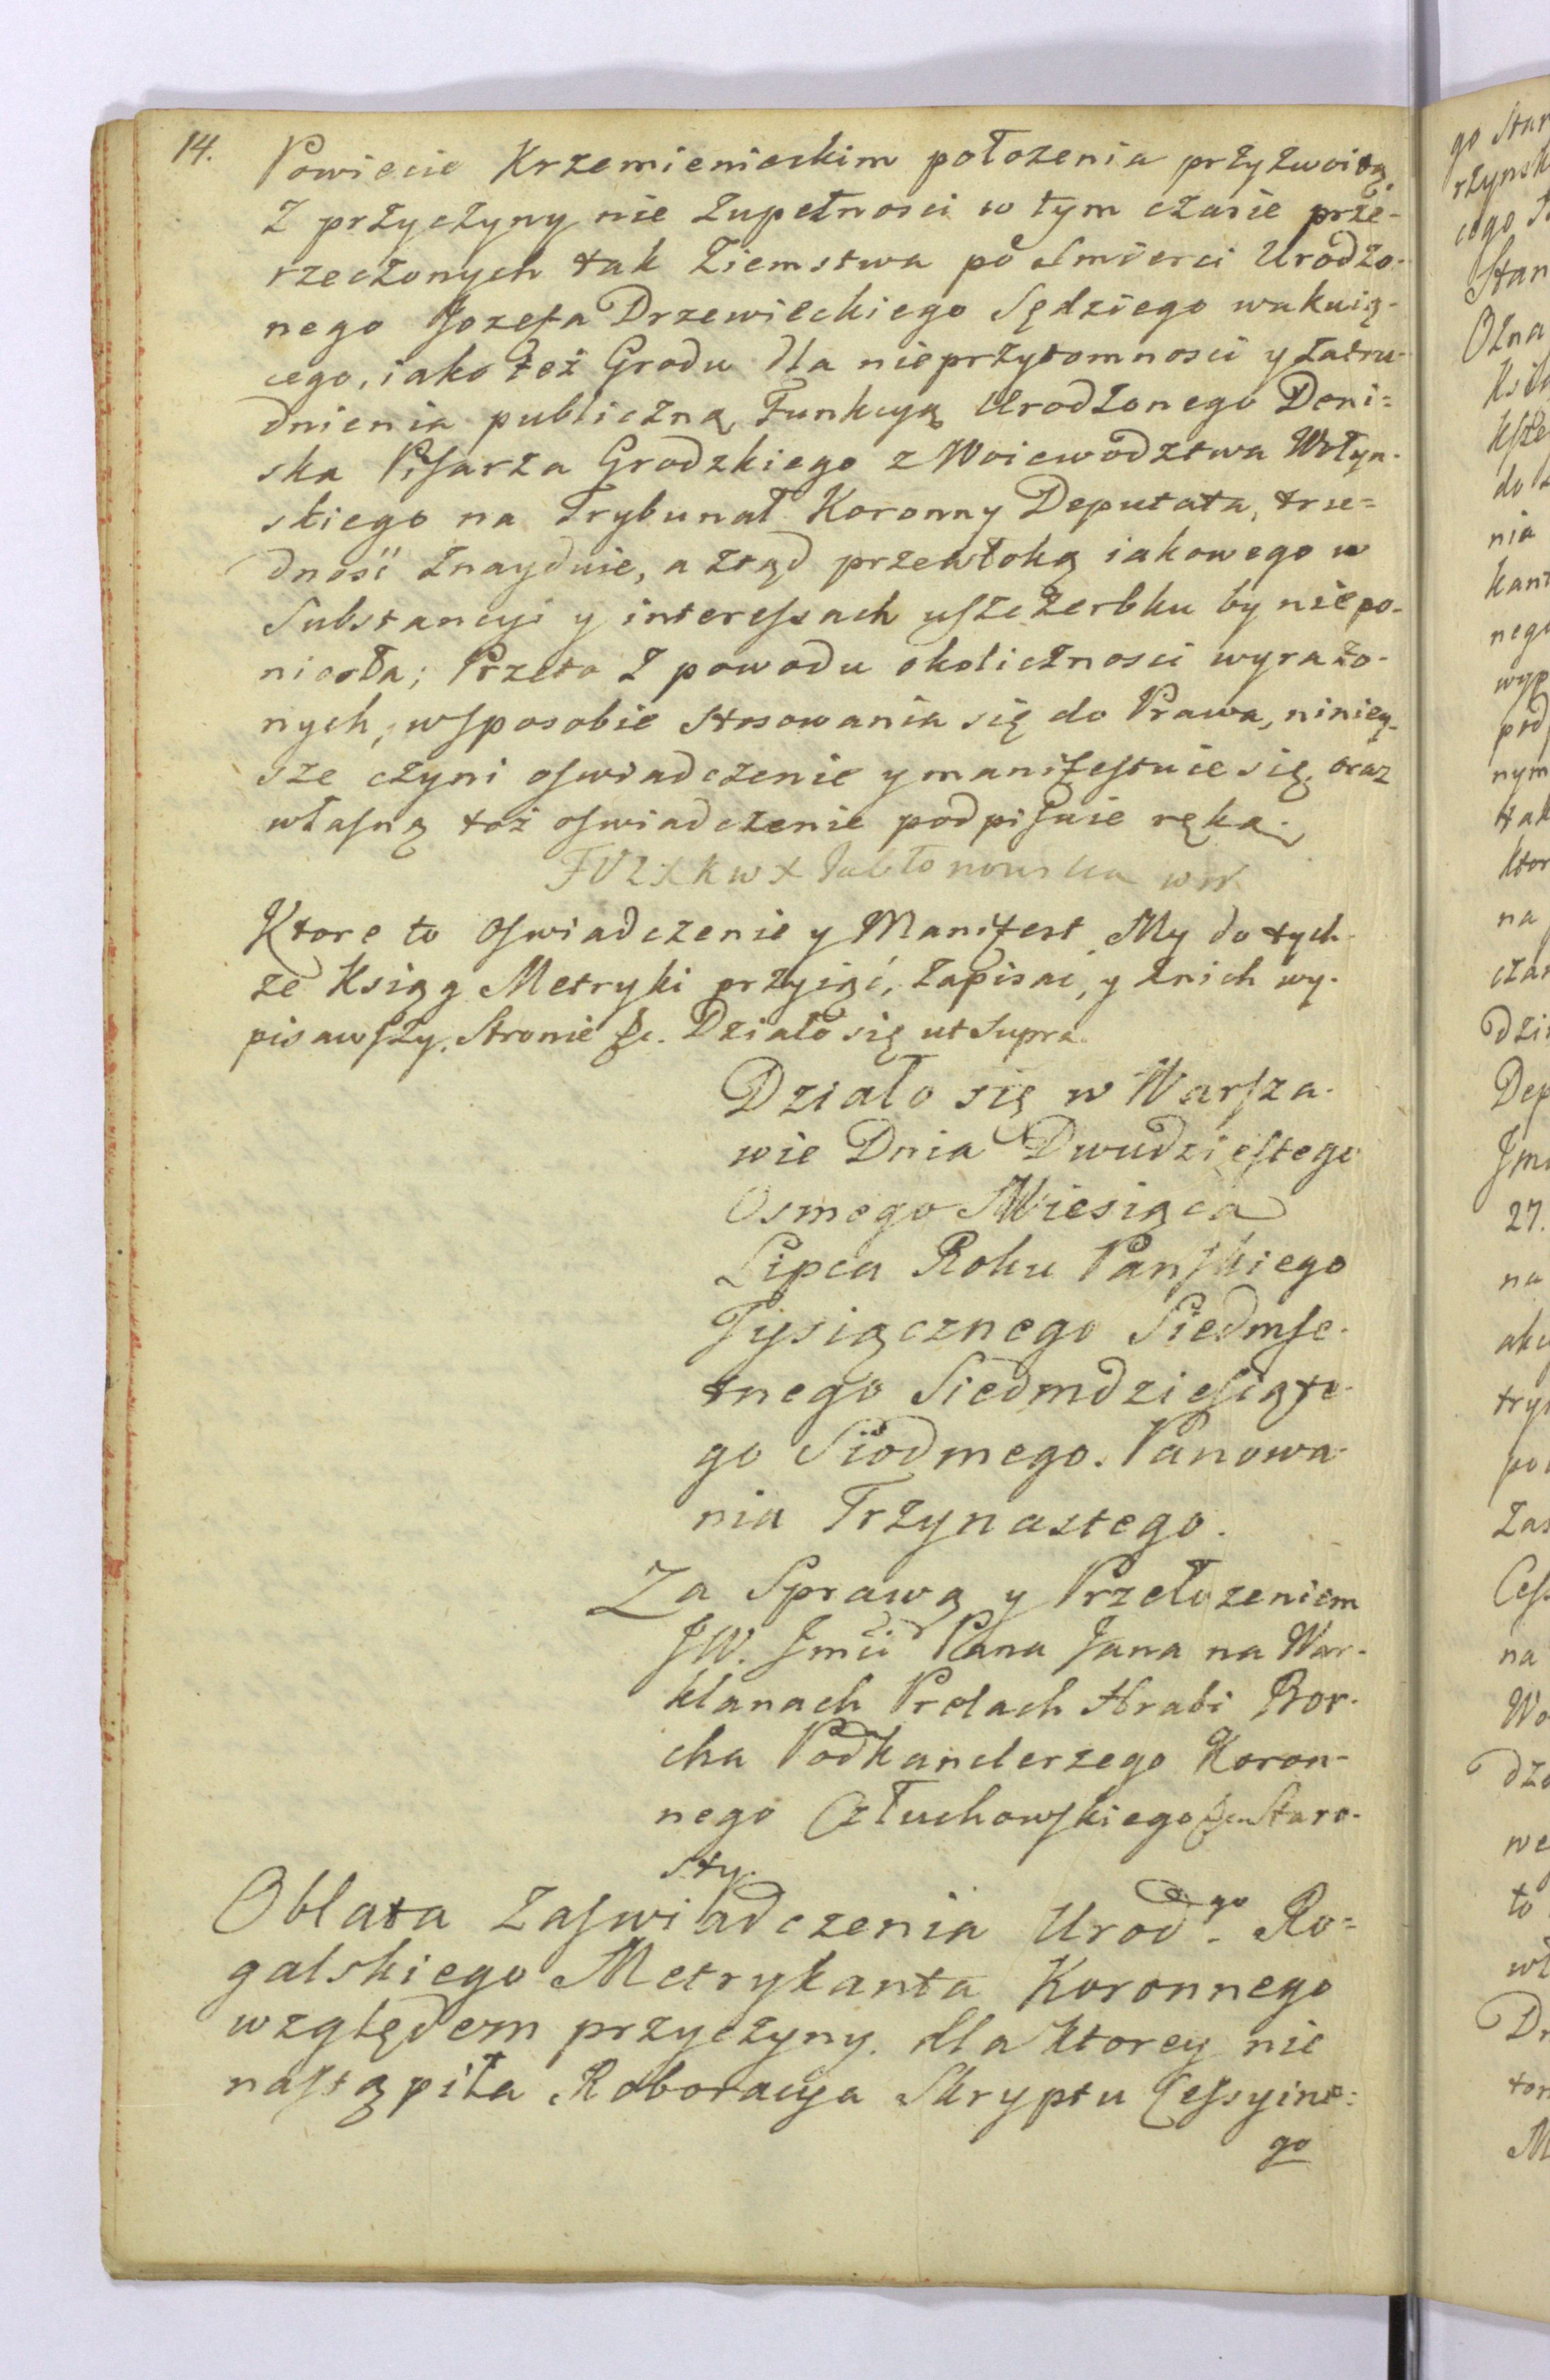 14.
Powiecie Krzemienieckim położenia przyzwoitą,
z przyczyny nie zupełnosci w tym czasie prze-
rzeczonych tak Ziemstwa po Smierci Urodzo-
nego Jozefa Drzewieckiego Sędziego wakuią-
cego, iako też Grodu dla nieprzytomnosci y zatru-
dnienia publiczną Funkcyą Urodzonego Deni=
ska Pisarza Grodzkiego z Woiewodztwa Wołyn-
skiego na Trybunał Koronny Deputata, tru=
dność znayduie, a ztąd przewłoką iakowego w
Substancyi y interessach uszczerbku by niepo-
niosła; Przeto z powodu okolicznosci wyrażo-
nych, w sposobie stosowania się do Prawa, niniey-
sze czyni oswiadczenie y manifestuie się, oraz
własną toż oswiadczenie podpisuie ręką.
Jabłonowska
Ktore to Oswiadczenie y Manifest My do tych-
że Ksiąg Metryki przyiąć, zapisać, y znich wy-
pisawszy, Stronie &c. Działo się ut Supra.
Działo się w Warsza-
wie Dnia Dwudziestego
Osmego Miesiąca
Lipca Roku Panskiego
Tysiącznego Siedmse-
tnego Siedmdziesiąte-
go Siodmego. Panowa-
nia Trzynastego.
Za Sprawą y Przełożeniem
JW. Jmci Pana Jana na War-
klanach Prelach Hrabi Bor-
cha Podkanclerzego Koron-
nego Człuchowskiego &c Staro-
sty.
Oblata Zaswiadczenia Urodgo. Ro=
galskiego Metrykanta Koronnego
względem przyczyny. dla ktorey nie
nastąpiła Roboracya Skryptu Cessyine=
go